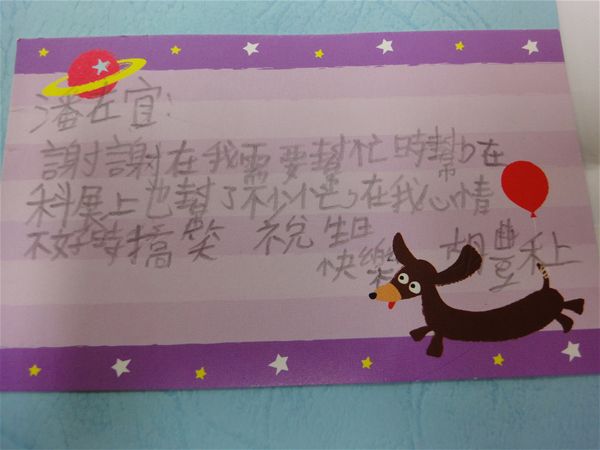 潘在宜:
謝謝在我需要幫忙時幫,在
科展上也幫了不少忙,在我心情
不好時搞笑 祝 生日
快樂 胡豊